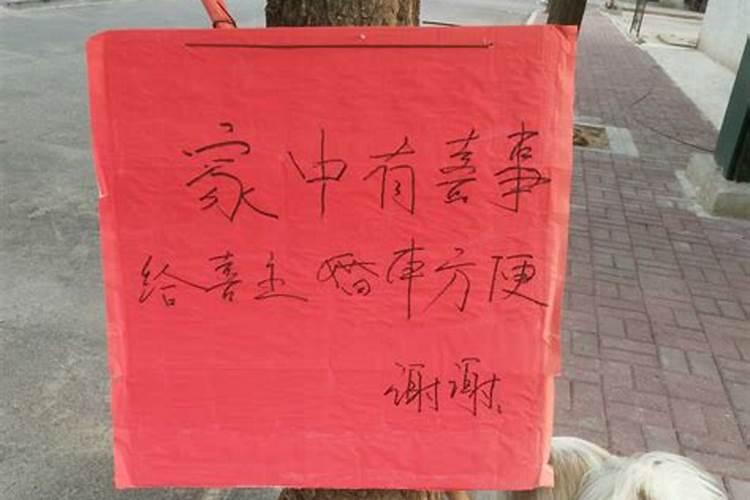 家中有喜事
给喜主婚车方便
谢谢.